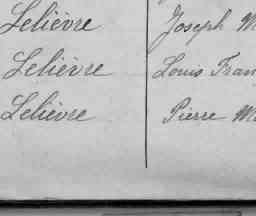 Lelièvre Joseph M
Lelièvre Louis Fran
Lelièvre Pierre M